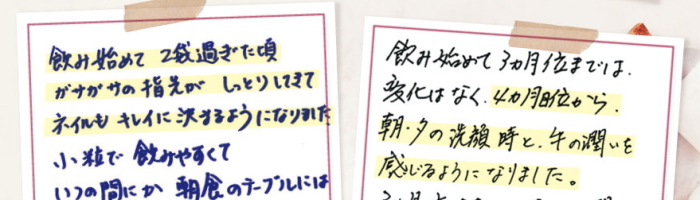 飲み始めて 2袋過ぎた頃
ガサガサの指先が しっとりしてきて
ネイルも キレイに 決まるようになりました
小粒で 飲みやすくて
いつの間にか 朝食のテーブルには
飲み始めて3ヵ月位までは、
変化はなく、4ヵ月目位から、
朝・夕の洗顔時と、手の潤いを
感じるようになりました。